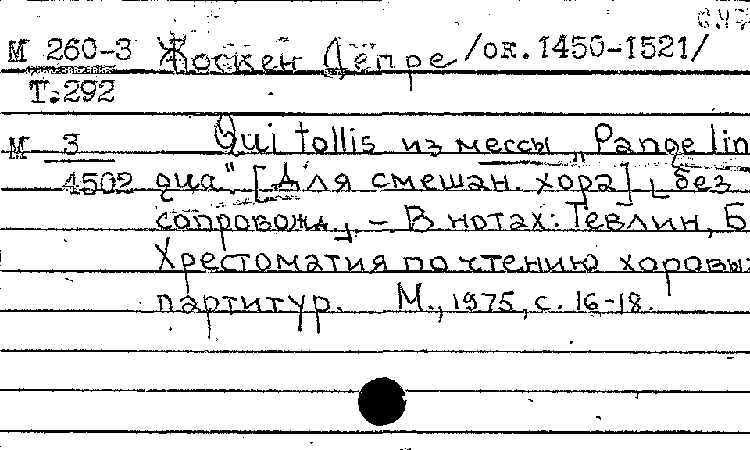 М 260-3 Жоскен Депре /ок. 1450-1521/
Т:292
М 3 Qui tollis из мессы „Pange lin
4502 gua". [Для смешан. хора] [без
сопровожд.]. - В нотах: Тевлин, Б
Хрестоматия по чтению хоровы
партитур. М., 1975, с. 16-18.